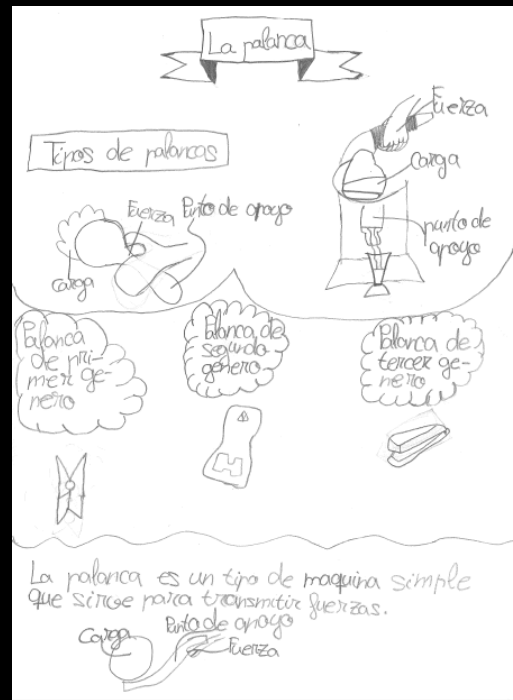 La palanca
Fuerza
Tipos de palancas
Carga
Fuerza
Punto de apoyo
punto de
apoyo
carga
Palanca
de pri-
mer ge-
nero
Palanca de
segundo
género
Palanca de
tercer ge-
nero
La palanca es un tipo de maquina simple
que sirve para transmitir fuerzas.
Punto de apoyo
Carga
Fuerza